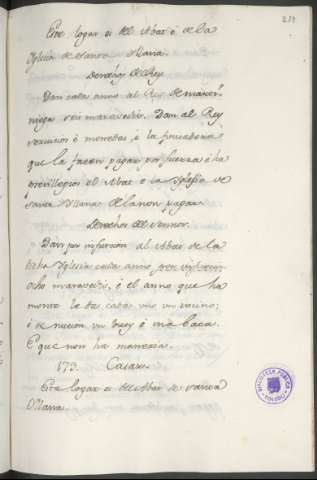 218
Este logar es del Abat é de la
Iglesia de Santa Maria.
Derechos del Rey.
Dan cada anno al Rey de martini
niega seis maravedis. Dan al Rey
servicios é monedas, é la fonsadera
que la facen pagar por fuerza é ha
previllegios el Abat é la Iglesia de
Santa Maria de la non pagar.
Derechos del Sennor.
Dan por infurcion al Abat de la
dicha Iglesia cada anno por infurcion
ocho maravedis, é el anno que ha
monte le da cada uno un tocino;
é se mueren un buey é una baca.
E que non ha manneria.
173. Casares.
Este logar es del Abat de Santa
Maria.
BIBLIOTECA PUBLICA
TOLEDO